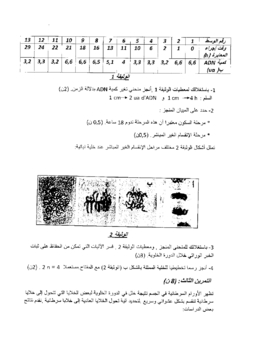 رقم الوسط 1 2 3 4 5 6 7 8 9 10 11 12 13
وقت إجراء المعايرة (h) 0 1 2 6 10 11 13 16 18 21 22 24 29
كمية ADN (ua) 6,6 6,6 3,2 3,3 3,5 4 5,1 6,5 6,6 6,6 3,2 3,3 3,2
الوثيقة 1
1- باستغلالك لمعطيات الوثيقة 1 ,أنجز منحنى تغير كمية ADN بدلالة الزمن. (2ن)
السلم : 1 cm → 4 h و 1 cm → 2 ua d'ADN
2- حدد على البيان المنجز :
* مرحلة السكون معتبرا أن هذه المرحلة تدوم 18 ساعة. (0,5 ن)
* مرحلة الإنقسام الغير المباشر. (0,5ن)
تمثل أشكال الوثيقة 2 مختلف مراحل الإنقسام الغير المباشر عند خلية نباتية:
الوثيقة 2
3- باستغلالك للمنحنى المنجز , ومعطيات الوثيقة 2 , فسر الآليات التي تمكن من الحفاظ على ثبات
الخبر الوراثي خلال الدورة الخلوية. (3ن)
4- أنجز رسما تخطيطيا للخلية الممثلة بالشكل ب (الوثيقة 2) مع المفتاح مستعملا 2 n = 4 . (2ن)
التمرين الثالث: (8 ن)
تظهر الأورام السرطانية في الجسم نتيجة خلل في الدورة الخلوية لبعض الخلايا التي تتحول إلى خلايا
سرطانية تنقسم بشكل عشوائي وسريع. لتحديد آلية تحول الخلايا العادية إلى خلايا سرطانية نقدم نتائج
بعض الدراسات: